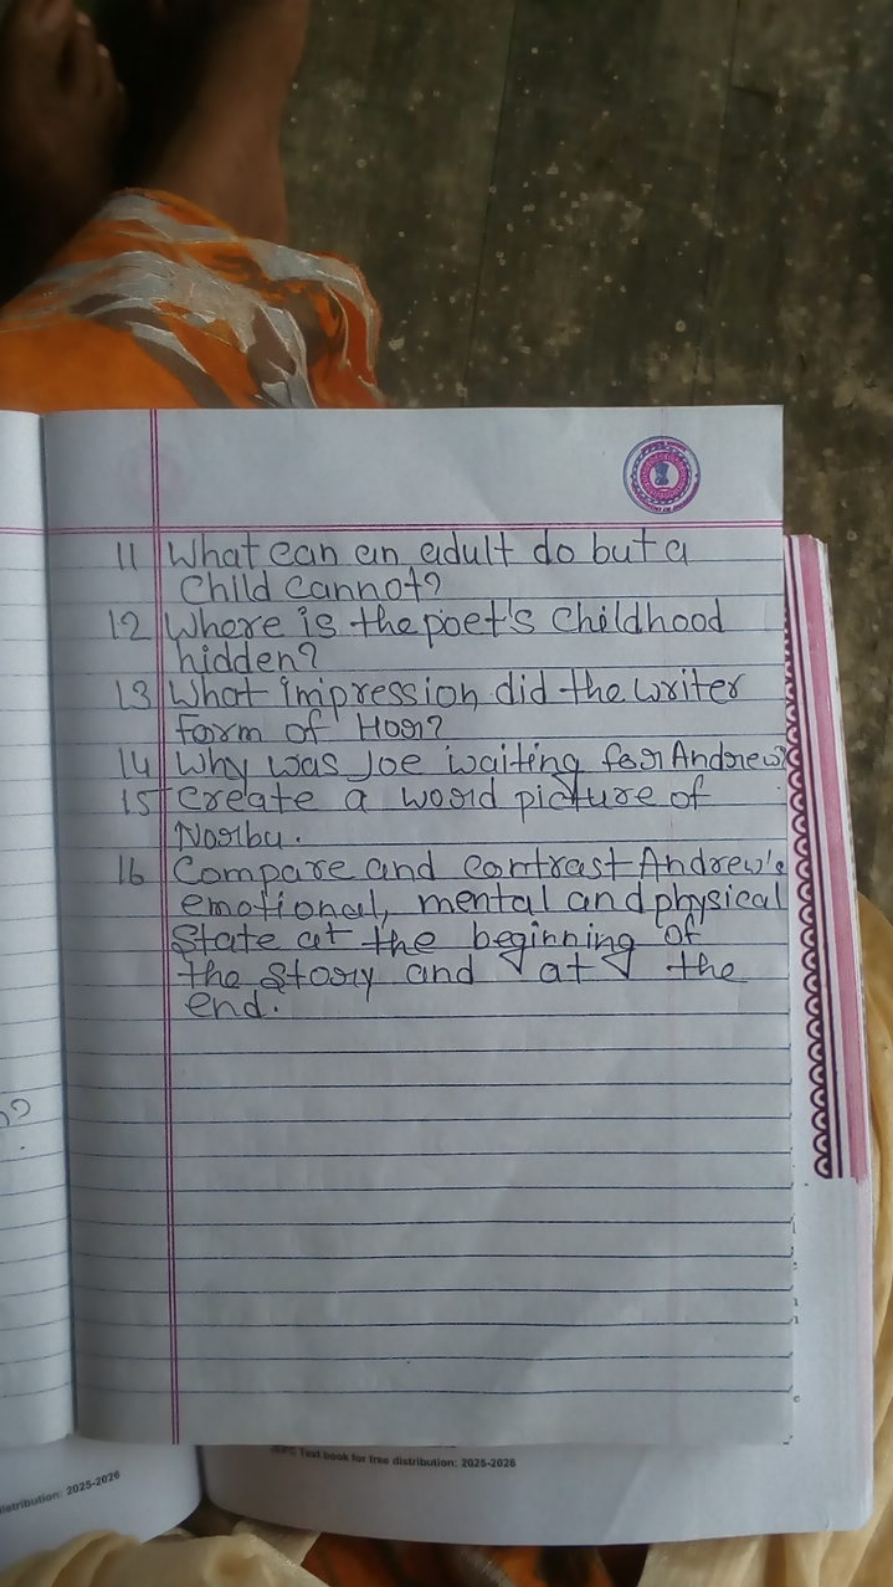 11 What can an adult do but a
child cannot?
12 Where is the poet's childhood
hidden?
13 What impression did the writer
form of Hor?
14 Why was Joe waiting for Andrew?
15 Create a word picture of
Norbu.
16 Compare and contrast Andrew's
emotional, mental and physical
State at the beginning of
the story and at the
end.
Text book for free distribution: 2025-2026
distribution: 2025-2026